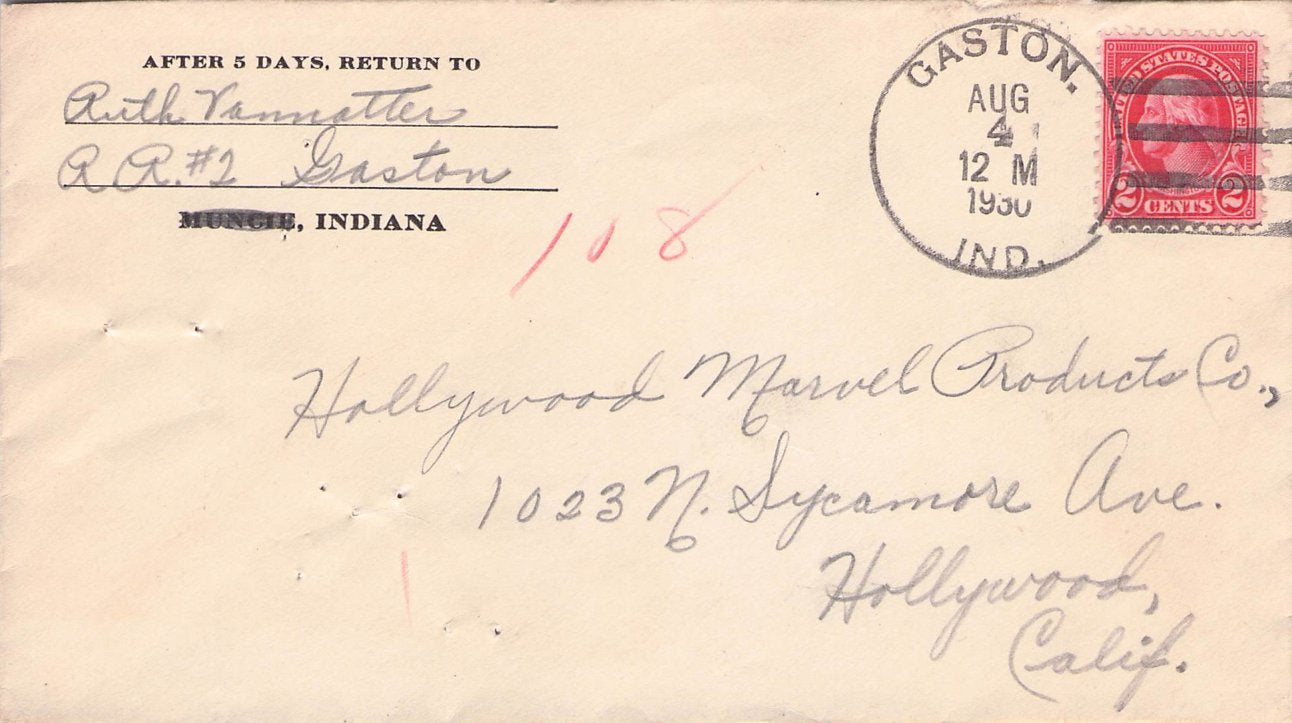 AFTER 5 DAYS, RETURN TO
Ruth Vannatter
R R. #2 Gaston
MUNCIE, INDIANA
108
GASTON.
AUG
4
12 M
1930
IND.
UNITED STATES POSTAGE
2 CENTS 2
Hollywood Marvel Products Co.,
1023 N. Sycamore Ave.
Hollywood,
Calif.